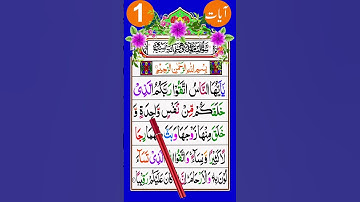 آیات
1
بِسْمِ اللّٰهِ الرَّحْمٰنِ الرَّحِيْمِ
يٰۤاَيُّهَا النَّاسُ اتَّقُوْا رَبَّكُمُ الَّذِىْ
خَلَقَكُمْ مِّنْ نَّفْسٍ وَّاحِدَةٍ وَّ
خَلَقَ مِنْهَا زَوْجَهَا وَبَثَّ مِنْهُمَا رِجَا
لًا كَثِيْرًا وَّنِسَآءً ۚ وَاتَّقُوا اللّٰهَ الَّذِىْ تَسَآءَ
لُوْنَ بِهٖ وَالْاَرْحَامَ ؕ اِنَّ اللّٰهَ كَانَ عَلَيْكُمْ رَقِيْبًا